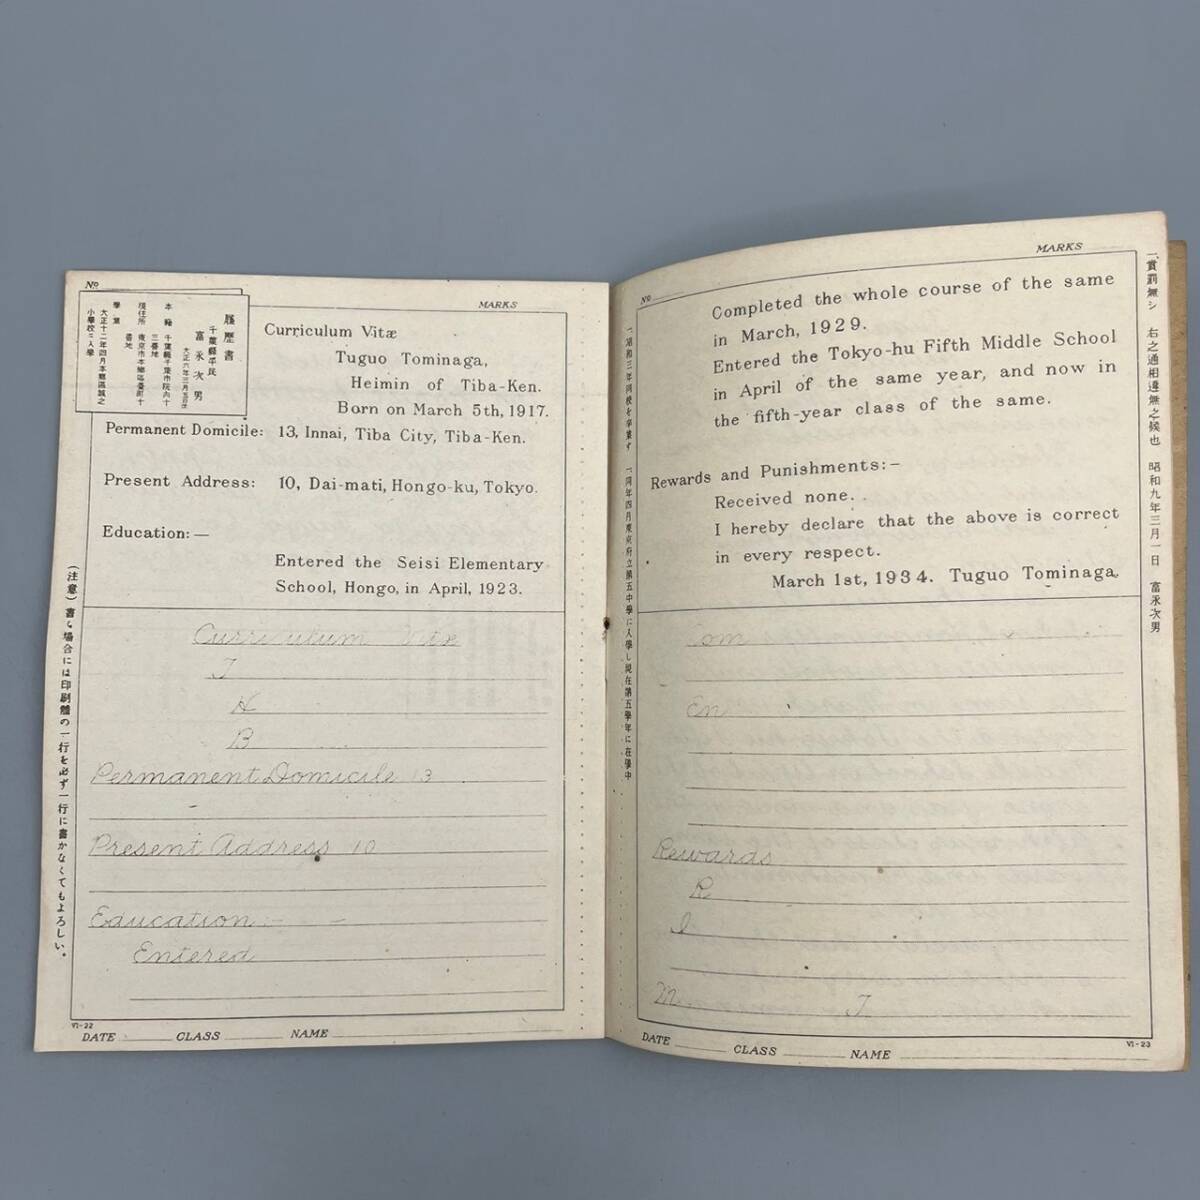 No
MARKS
履歷書
千葉縣平民
富永次男
大正六年三月五日生
本籍 千葉縣千葉市院内十
三番地
現住所 東京市本鄕區臺町十
番地
學業
大正十二年四月本鄕區誠之
小學校ニ入學
Curriculum Vitæ
Tuguo Tominaga,
Heimin of Tiba-Ken.
Born on March 5th, 1917.
Permanent Domicile: 13, Innai, Tiba City, Tiba-Ken.
Present Address: 10, Dai-mati, Hongo-ku, Tokyo.
Education:—
Entered the Seisi Elementary
School, Hongo, in April, 1923.
Curriculum Vitæ
T
H
B
Permanent Domicile 13
Present Address 10
Education:- -
Entered
(注意) 書く場合には印刷體の一行を必ず一行に書かなくてもよろしい。
VI-22
DATE CLASS NAME
No
MARKS
一、昭和三年同校を卒業す 一、同年四月東京府立第五中學に入學し現在第五學年に在學中
Completed the whole course of the same
in March, 1929.
Entered the Tokyo-hu Fifth Middle School
in April of the same year, and now in
the fifth-year class of the same.
Rewards and Punishments:-
Received none.
I hereby declare that the above is correct
in every respect.
March 1st, 1934. Tuguo Tominaga,
一、賞罰無シ 右之通相違無之候也 昭和九年三月一日 富永次男
Com
En
Rewards
R
I
M T
DATE CLASS NAME
VI-23